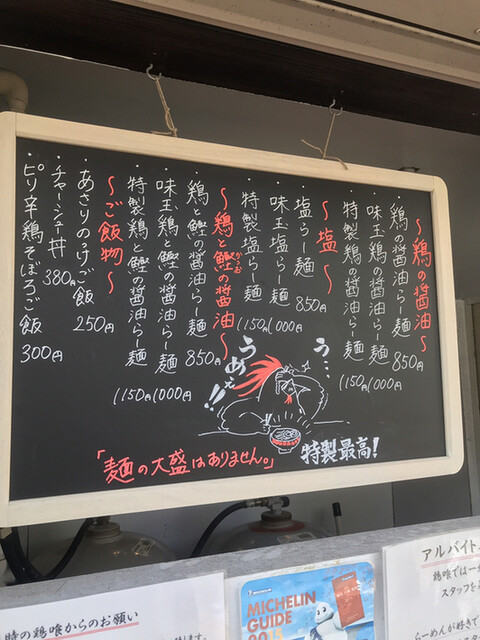 〜鶏の醤油〜
・鶏の醤油らー麺 850円
味玉鶏の醤油らー麺 1000円
特製鶏の醤油らー麺 1150円
〜塩〜
・塩らー麺 850円
味玉塩らー麺 1000円
特製塩らー麺 1150円
〜鶏と鰹の醤油〜
かつお
・鶏と鰹の醤油らー麺 850円
味玉鶏と鰹の醤油らー麺 1000円
特製鶏と鰹の醤油らー麺 1150円
〜ご飯物〜
・あさりのっけご飯 250円
・チャーシュー丼 380円
・ピリ辛鶏そぼろご飯 300円
う…
うめぇ!!
特製最高!
「麺の大盛はありません。」
時の鶏喰からのお願い
MICHELIN
GUIDE
2015
アルバイト
鶏喰では一
スタッフを
らーめんが好きで